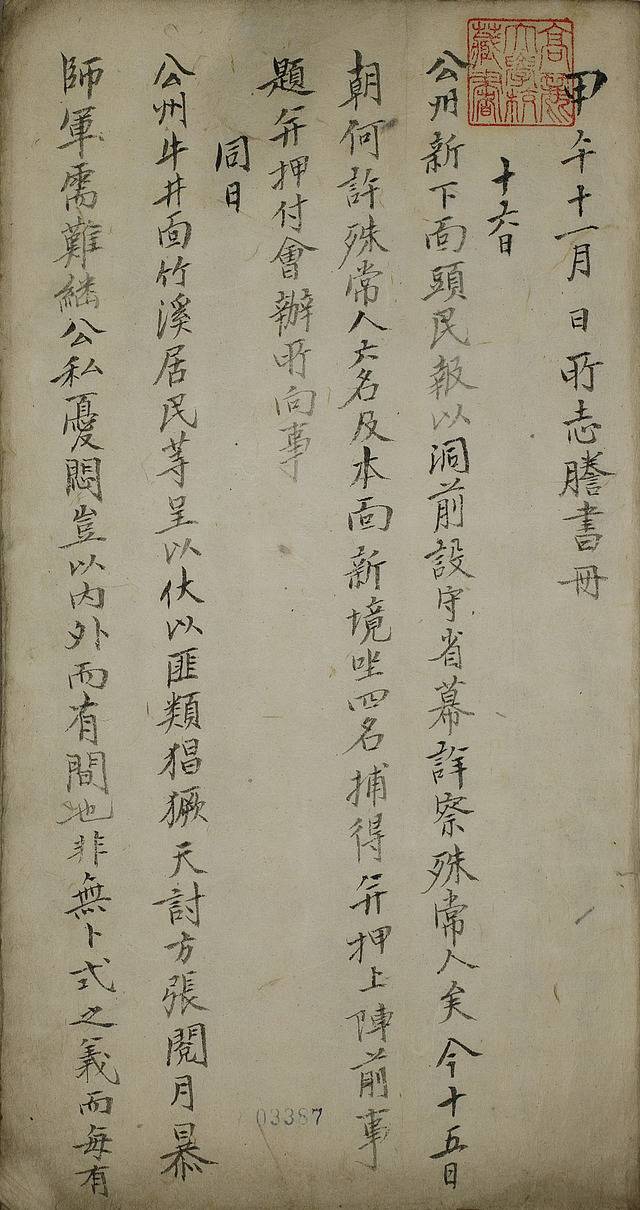 甲午十一月 日 所志謄書冊
高麗大學校藏書
十六日
公州新下面頭民報以洞前設守省幕詳察殊常人矣今十五日
朝何許殊常人六名及本面新境 四名捕得并押上陣前事
題并押付會辦所向事
同日
公州牛井面竹溪居民等呈以伏以匪類猖獗天討方張閱月暴
師軍需難繼公私憂悶豈以內外而有間也非無卜式之義而每有
03387